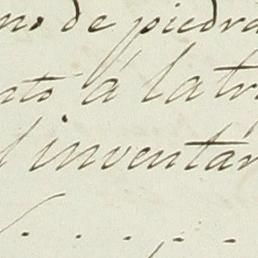 no de piedra
nto á la tr
l inventar